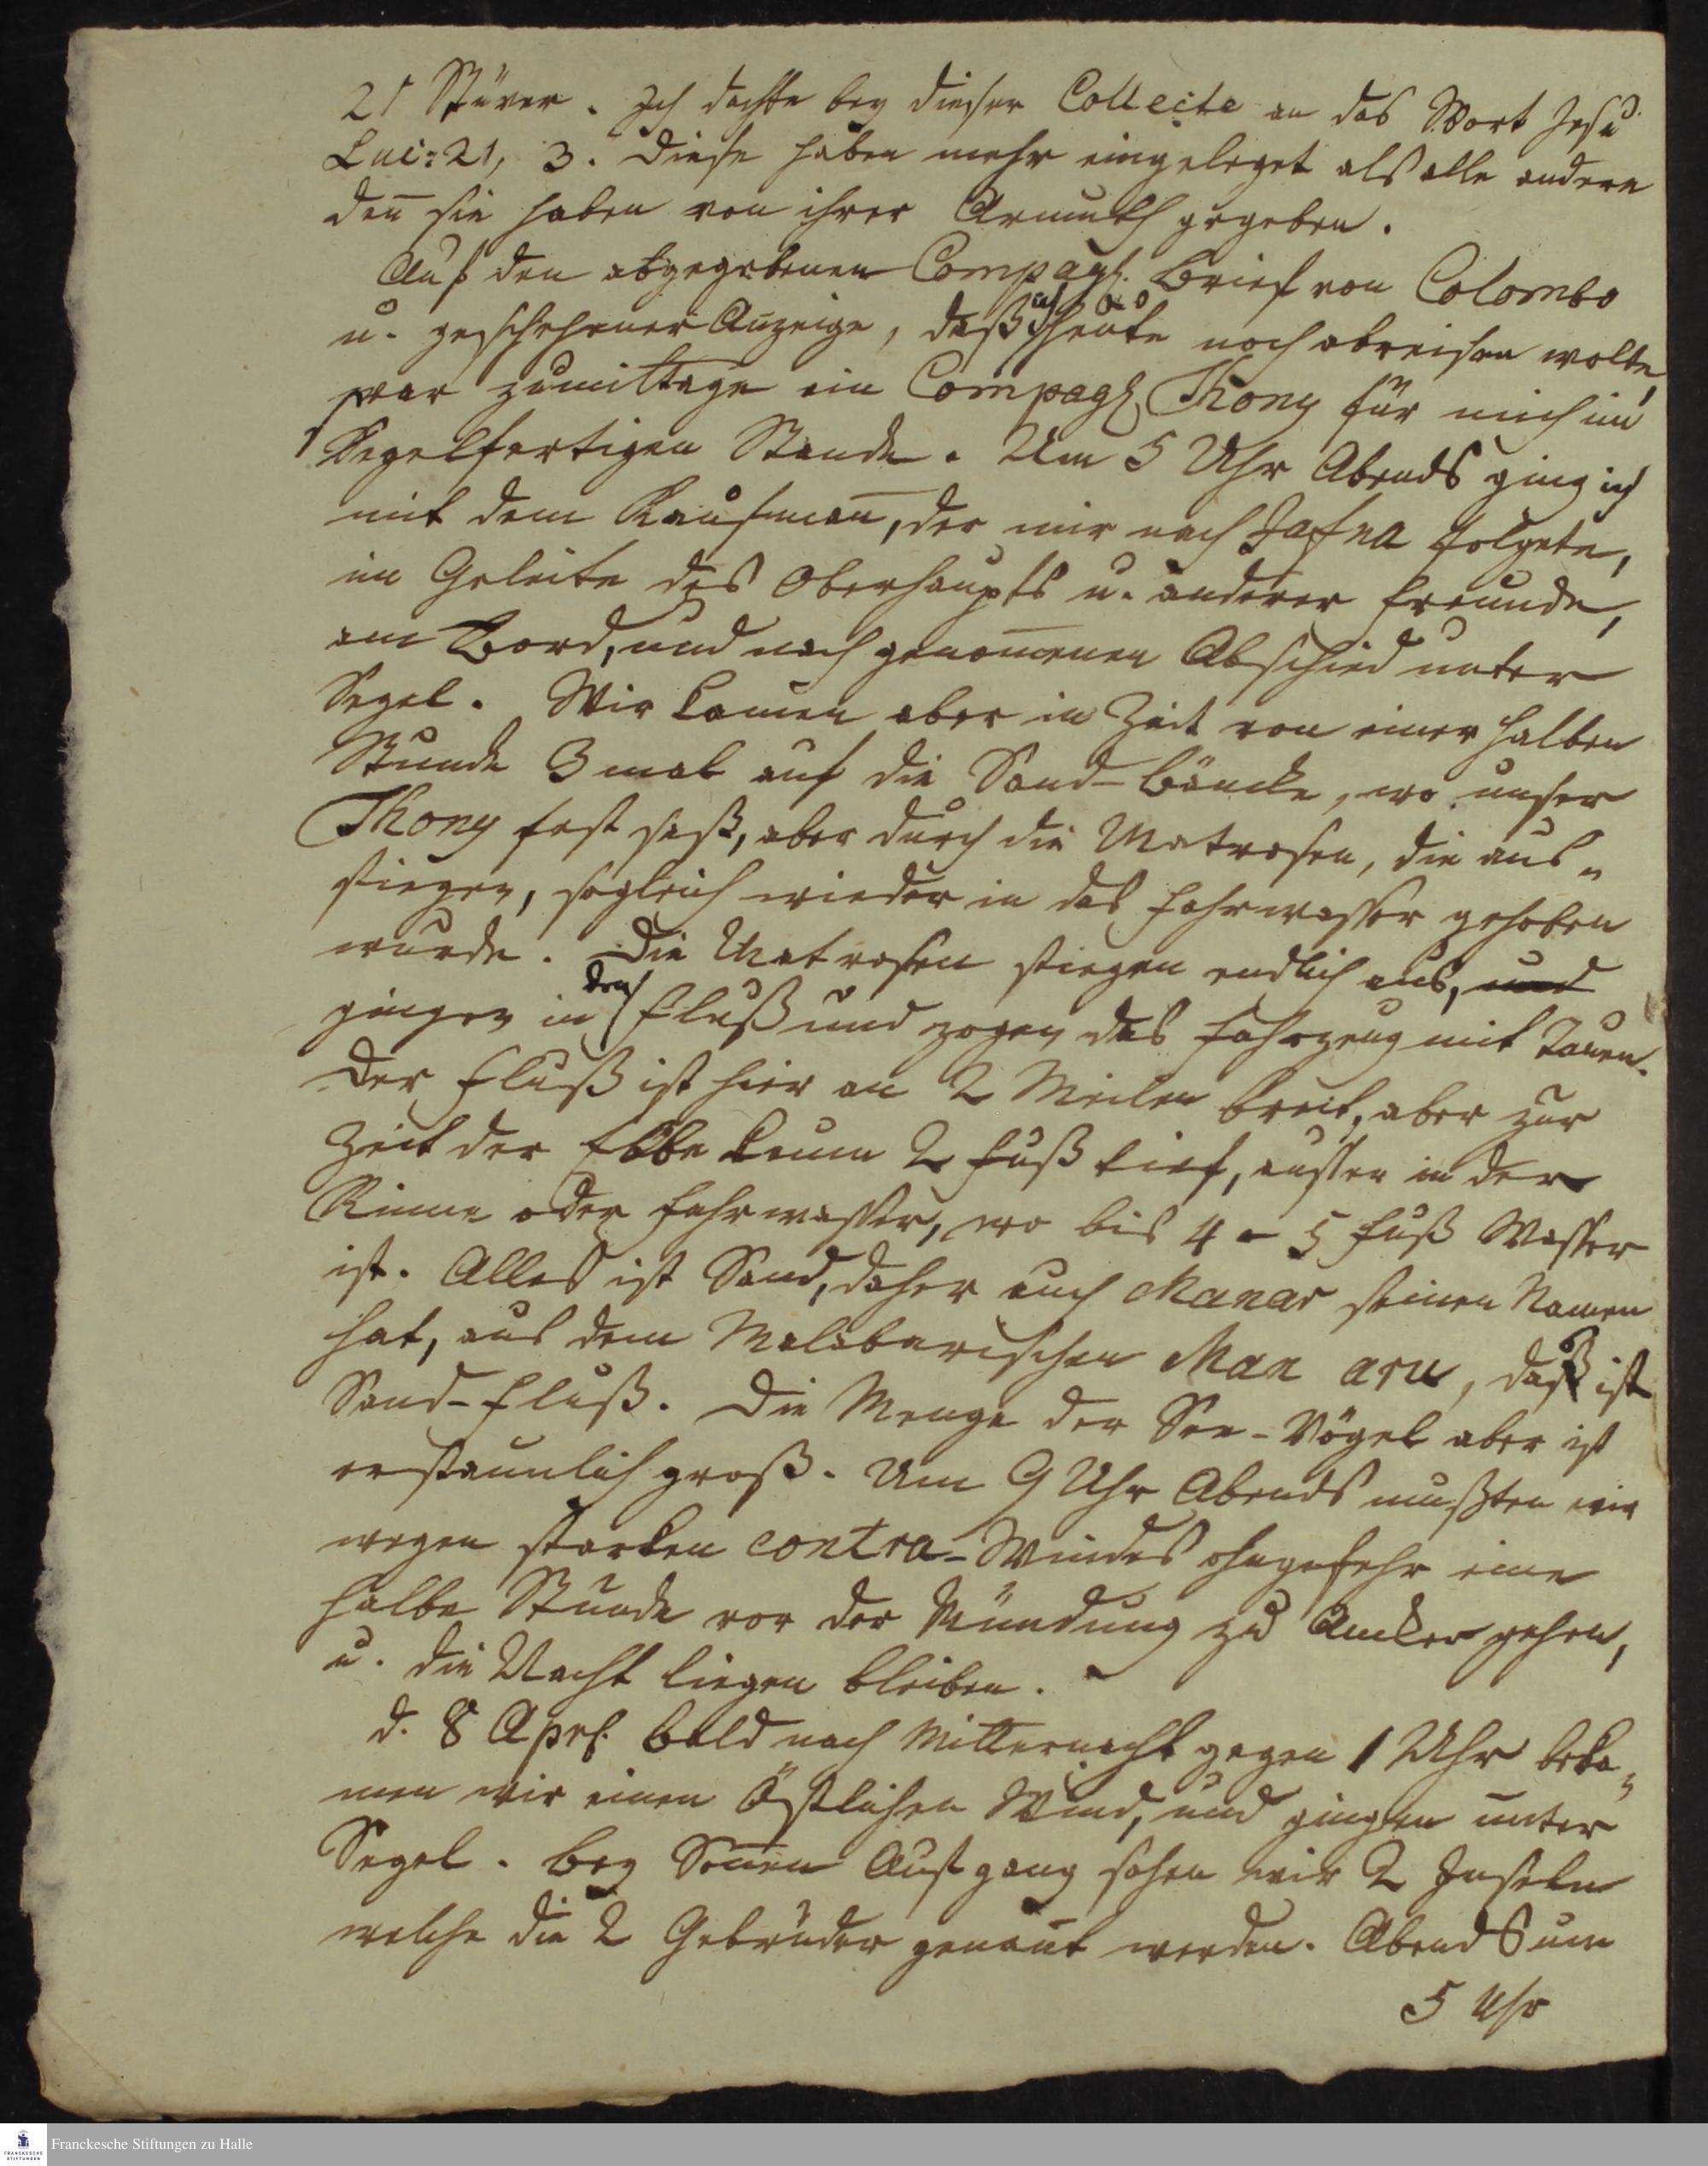 21 Stüver. Ich dachte bey dieser Collecte an das Wort Jesu
Luc: 21, 3. diese haben mehr eingeleget als alle andere
den̄ sie haben von ihrer Armuth gegeben.
Auf den abgegebenen Compagl. Brief von Colombo
u. geschehener Anzeige, daß ich heute noch abreisen wolte,
war zumittage ein Compagl. Thony für mich im
Segelfertigen Stande. Um 5 Uhr Abends ging ich
mit dem Kaufman̄, der mir nach Jafna folgete,
im Geleite des Oberhaupts u. anderer Freunde,
am Bord, und nach genom̄enen Abschied unter
Segel. Wir kamen aber in Zeit von einer halben
Stunde 3 mal auf die Sand-Bäncke, wo unser
Thony fest saß, aber durch die Matrosen, die aus-
stiegen, sogleich wieder in das Fahrwasser gehoben
wurde. Die Matrosen stiegen endlich aus, und
gingen in den Fluß und zogen das Fahrzeug mit Tauen.
Der Fluß ist hier an 2 Meilen breit, aber zur
Zeit der Ebbe kaum 2 Fuß tief, ausser in der
Rinne oder Fahrwasser, wo bis 4 - 5 Fuß Wasser
ist. Alles ist Sand, daher auch Manar seinen Namen
hat, aus dem Malabarischen Man aru, daß ist
Sand-Fluß. Die Menge der See-Vögel aber ist
erstaunlich groß. Um 9 Uhr Abends mußten wir
wegen starken contra-Windes ohngefehr eine
halbe Stunde vor der Mündung zu Ancker gehen,
u. die Nacht liegen bleiben.
d. 8 Aprl. bald nach Mitternacht gegen 1 Uhr beka-
men wir einen Östlichen Wind, und gingen unter
Segel. bey Son̄en Aufgang sahen wir 2 Inseln
welche die 2 Gebrüder genan̄t werden. Abends um
5 Uhr
Franckesche Stiftungen zu Halle
FRANCKESCHE
STIFTUNGEN